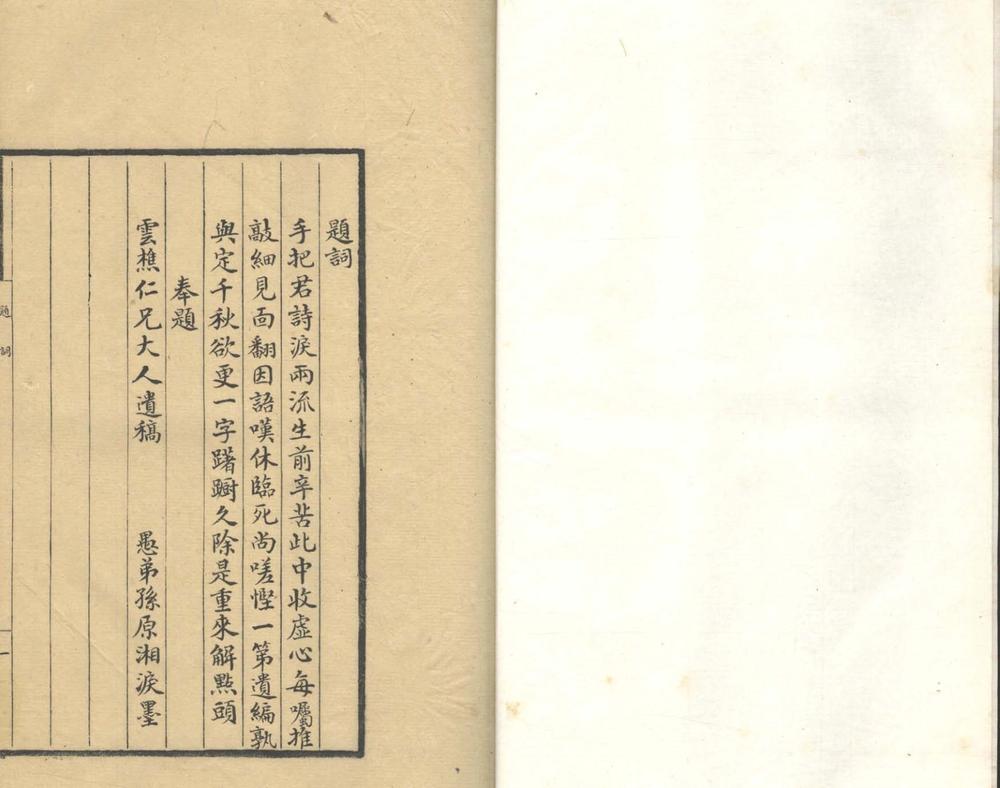 題詞
手把君詩淚兩流生前辛苦此中收虛心每囑推
敲細見面翻因語嘆休臨死尚嗟慳一第遺編孰
與定千秋欲更一字躇蹰久除是重來解點頭
奉題
雲樵仁兄大人遺稿　愚弟孫原湘淚墨
題詞
一